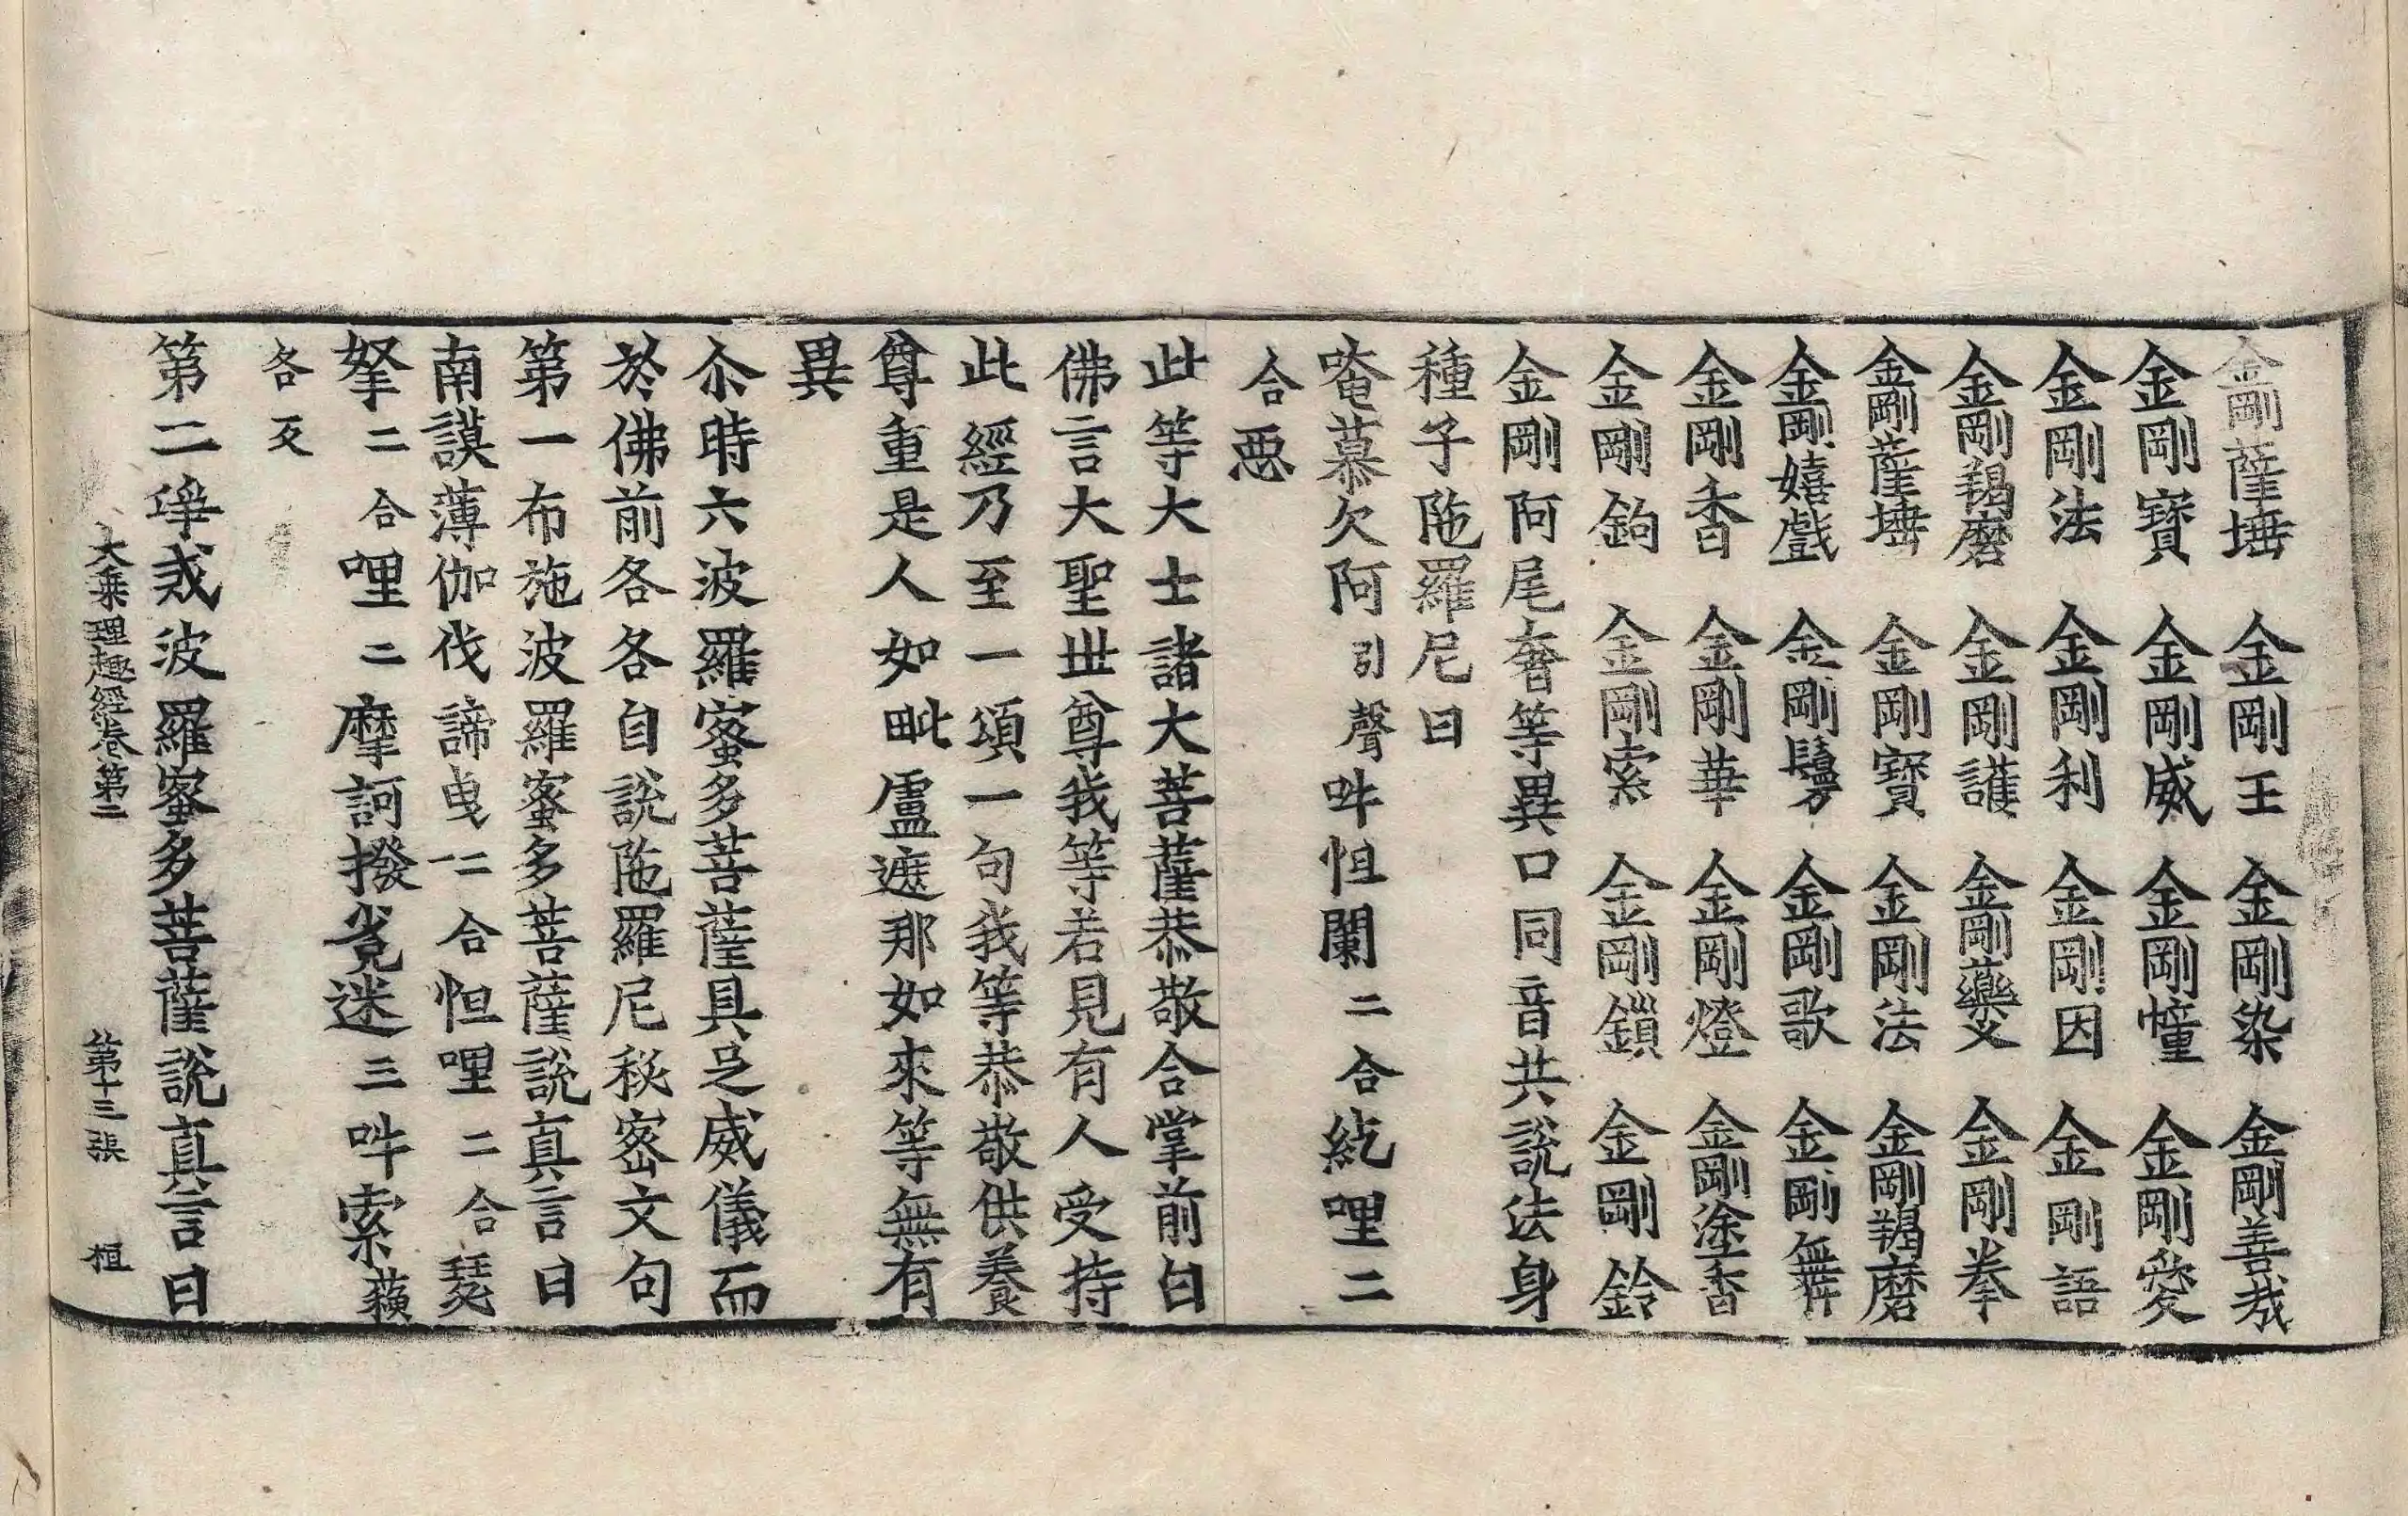 金剛薩埵 金剛王 金剛染 金剛善哉
金剛寶 金剛威 金剛幢 金剛愛
金剛法 金剛利 金剛因 金剛語
金剛羯磨 金剛護 金剛藥叉 金剛拳
金剛薩埵 金剛寶 金剛法 金剛羯磨
金剛嬉戲 金剛鬘 金剛歌 金剛舞
金剛香 金剛華 金剛燈 金剛塗香
金剛鉤 金剛索 金剛鎖 金剛鈴
金剛阿尾奢等異口同音共說法身
種子陁羅尼曰
唵慕欠阿引聲吽怛闌二合紇哩二
合惡
此等大士諸大菩薩恭敬合掌前白
佛言大聖世尊我等若見有人受持
此經乃至一頌一句我等恭敬供養
尊重是人如毗盧遮那如來等無有
異
尒時六波羅蜜多菩薩具足威儀而
於佛前各各自說陁羅尼秘密文句
第一布施波羅蜜多菩薩說真言曰
南謨薄伽伐諦曳一二合怛哩二合瑟
拏二合哩二摩訶撥㝹迷三吽索䕻
各反
第二淨戒波羅蜜多菩薩說真言曰
大乘理趣經卷第二 第十三張 桓